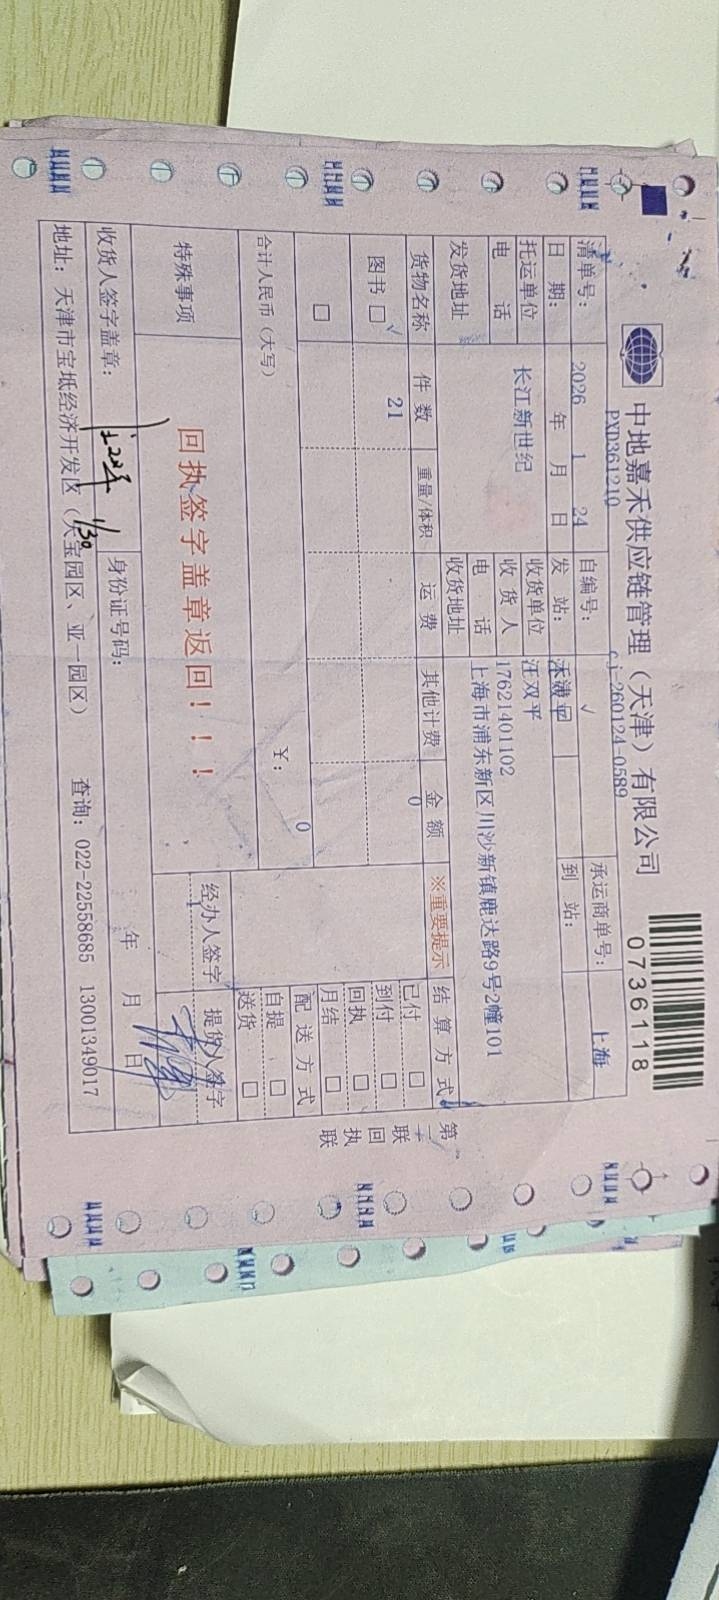 中地嘉禾供应链管理（天津）有限公司
0736118
清单号：PXD361210 自编号：cj-260124-0589 承运商单号：
日 期：2026 年 1 月 24 日 发 站： 到 站：上海
托运单位 长江新世纪 收货单位
电 话 收 货 人 汪双平
发货地址 电 话 17621401102
收货地址 上海市浦东新区川沙新镇鹿达路9号2幢101
货物名称 件 数 重量/体积 运 费 其他计费 金 额 ※重要提示 结 算 方 式
图书 □ √ 21 0 已付 □
□ 到付 □
回执 □
月结 □
合计人民币（大写） ¥： 0 配 送 方 式
自提 □
送货 □
特殊事项 回执签字盖章返回！！！ 经办人签字 提货人签字
收货人签字盖章： 1/30 身份证号码： 年 月 日
地址：天津市宝坻经济开发区（天宝园区、亚一园区） 查询：022-22558685 13001349017
第二联 回执联